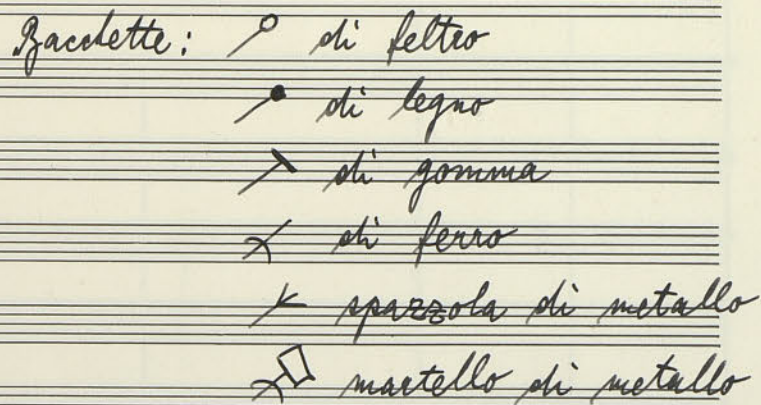 Bacchette: di feltro
di legno
di gomma
di ferro
spazzola di metallo
martello di metallo